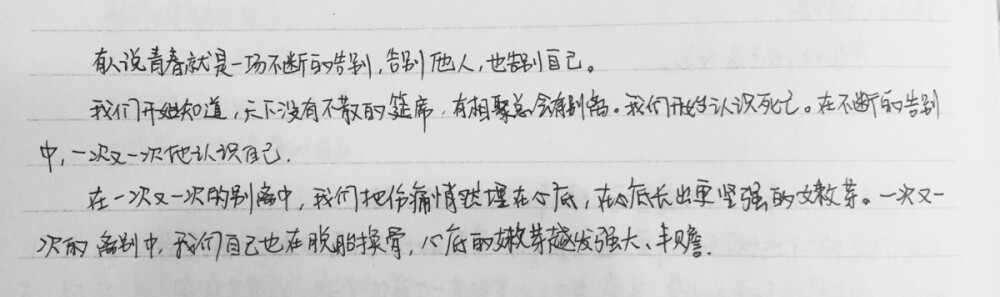 有人说青春就是一场不断的告别,告别他人,也告别自己。
我们开始知道,天下没有不散的筵席,有相聚总会有别离。我们开始认识死亡。在不断的告别
中,一次又一次地认识自己.
在一次又一次的别离中,我们把伤痛悄然埋在心底,在心底长出更坚强的嫩芽。一次又一
次的离别中,我们自己也在脱胎换骨,心底的嫩芽越发强大、丰赡.